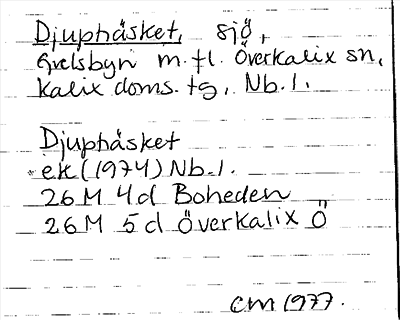 Djuphåsket, sjö,
Grelsbyn m.fl. Överkalix sn,
Kalix doms. tg, Nb. l.
Djuphåsket
ek (1974) Nb. l.
26 M 4d Boheden
26 M 5 d Överkalix Ö
CM 1977.